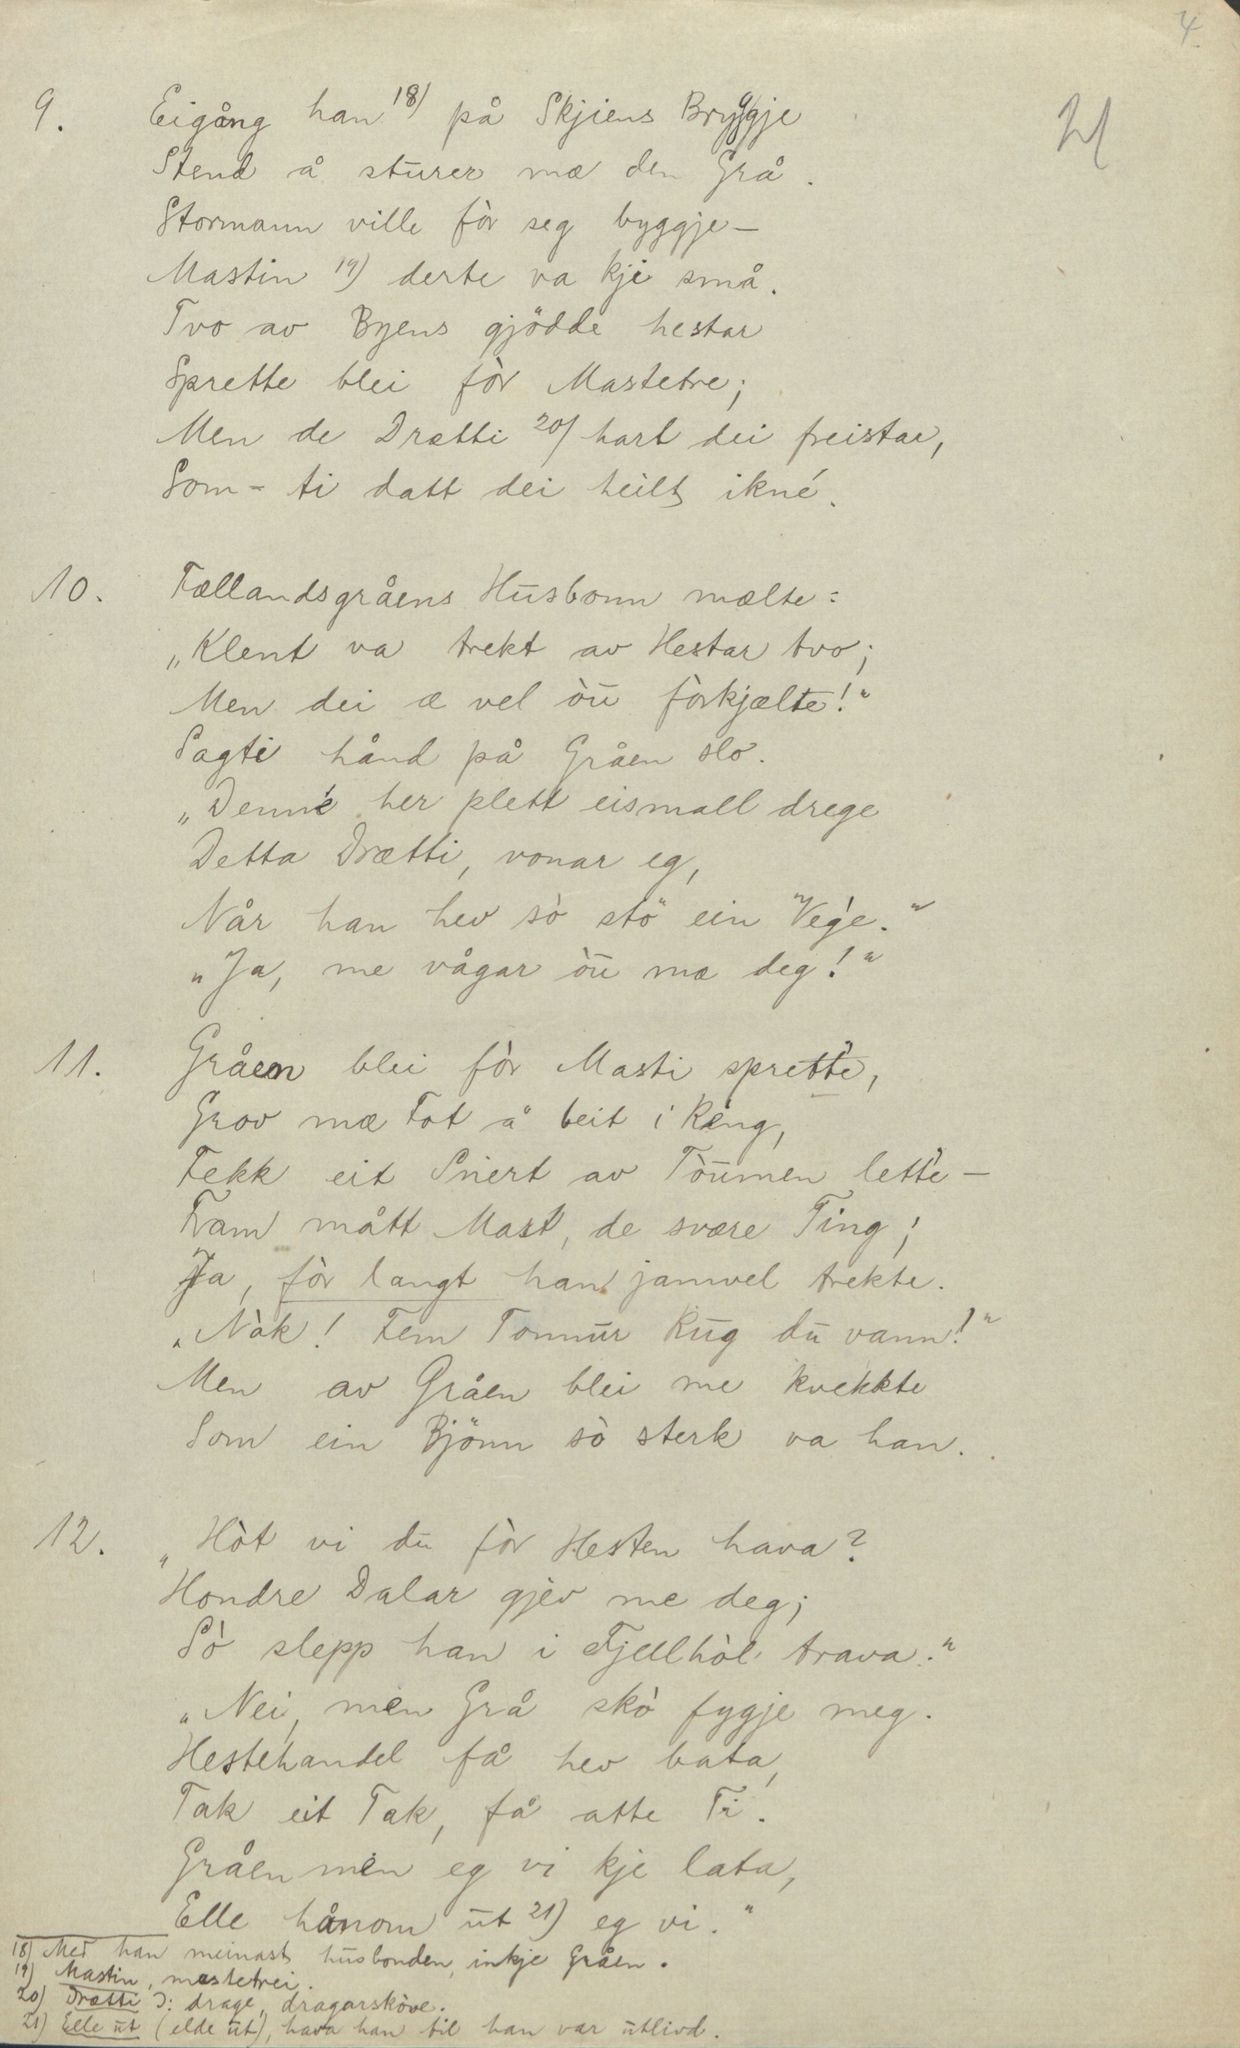 4.
21
9. Eigång han 18) på Skjiens Bryggje
Stend å sturer mæ den Grå.
Stormann ville fòr seg byggje –
Mastin 19) derte va kji små.
Tvo av Byens gjödde hestar
Sprette blei fòr Mastetre;
Men de Drætti 20) hart dei freistar,
Som-ti datt dei heilt ikné.
10. Fællandsgråens Husbonn mælte:
„Klent va trekt av Hestar tvo;
Men dei æ vel òu fòrkjælte!"
Sagti hånd på Gråen slo.
„Denné her plett eismall drege
Detta Drætti, vonar eg,
Når han hev sò stö ein Vége."
„Ja, me vågar òu mæ deg!"
11. Gråen blei fòr Masti sprette,
Grov mæ Fot å beit i Ring,
Fekk eit Snert av Tòumen lette –
Fram mått Mast, de svære Ting;
Ja, fòr langt han jamvel trekte.
„Nòk! Fem Tonnur Rug du vann!"
Men av Gråen blei me kvekkte
Som ein Bjönn sò sterk va han.
12. „Hòt vi du fòr Hesten hava?
Hondre Dalar gjev me deg;
Sò slepp han i Fjellhòl trava."
„Nei, min Grå skò fygje meg.
Hestehandel få hev bata,
Tak eit Tak, få atte Tri.
Gråen min eg vi kje lata,
Elle hånom ut 21) eg vi."
18) Med han meinast husbonden, inkje Gråen.
19) Mastin, mastetrei.
20) Drætti ɔ: drage, dragarsköve.
21) Elle ut (elde ut), hava han til han var utlivd.